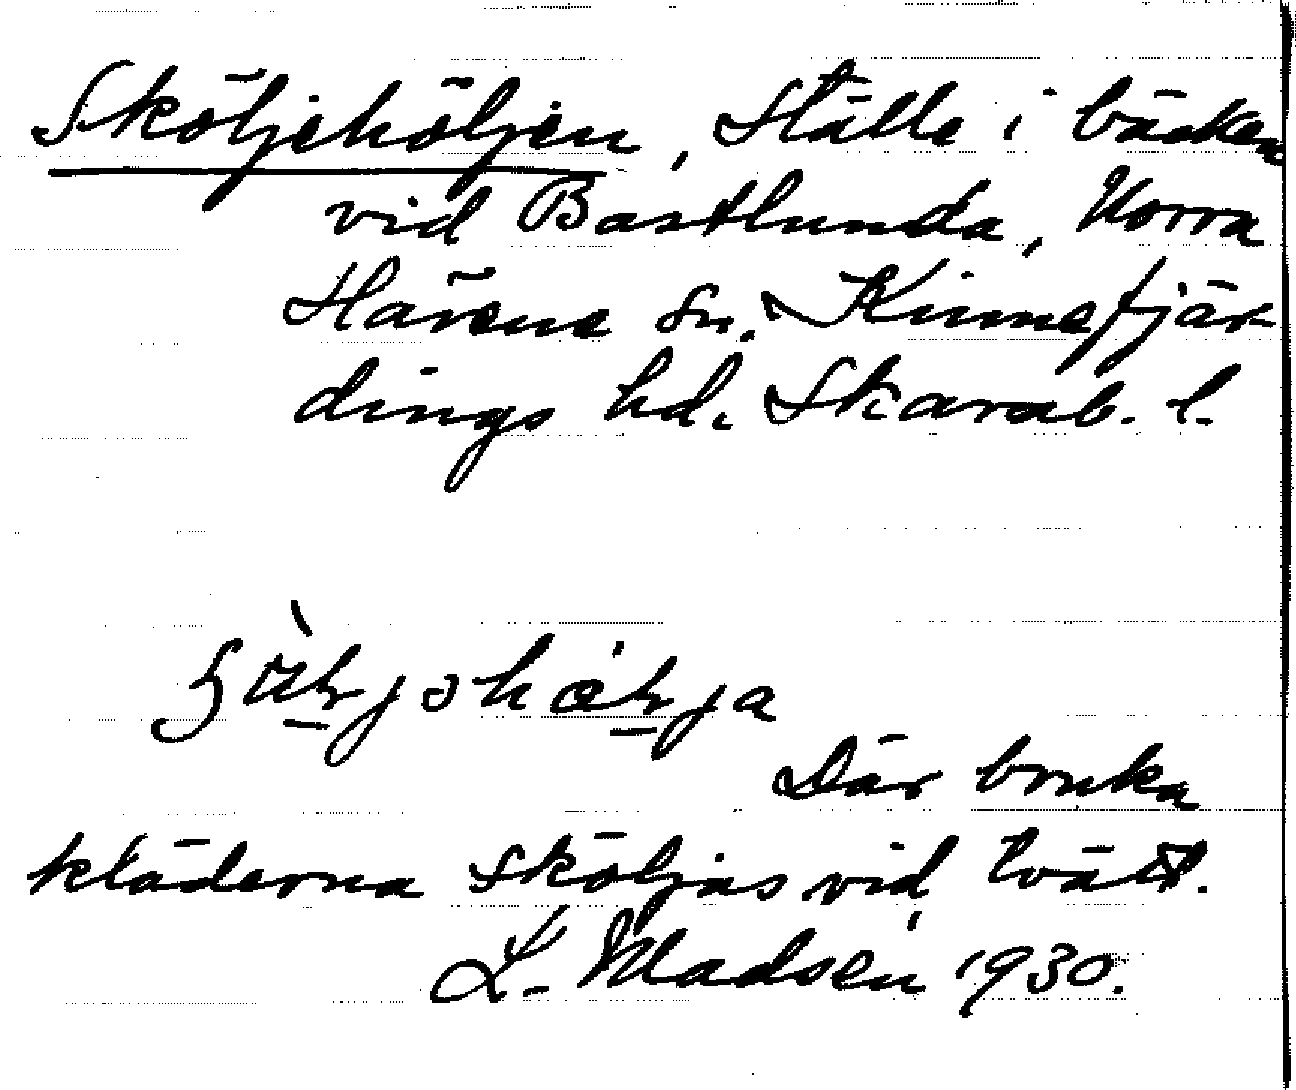 Sköljehöljen, Ställe i bäcken
vid Bastlunda, Norra
Härene sn. Kinnefjär-
dings hd. Skarab. l.
Där bruka
kläderna sköljas vid tvätt.
L. Madsén 1930.